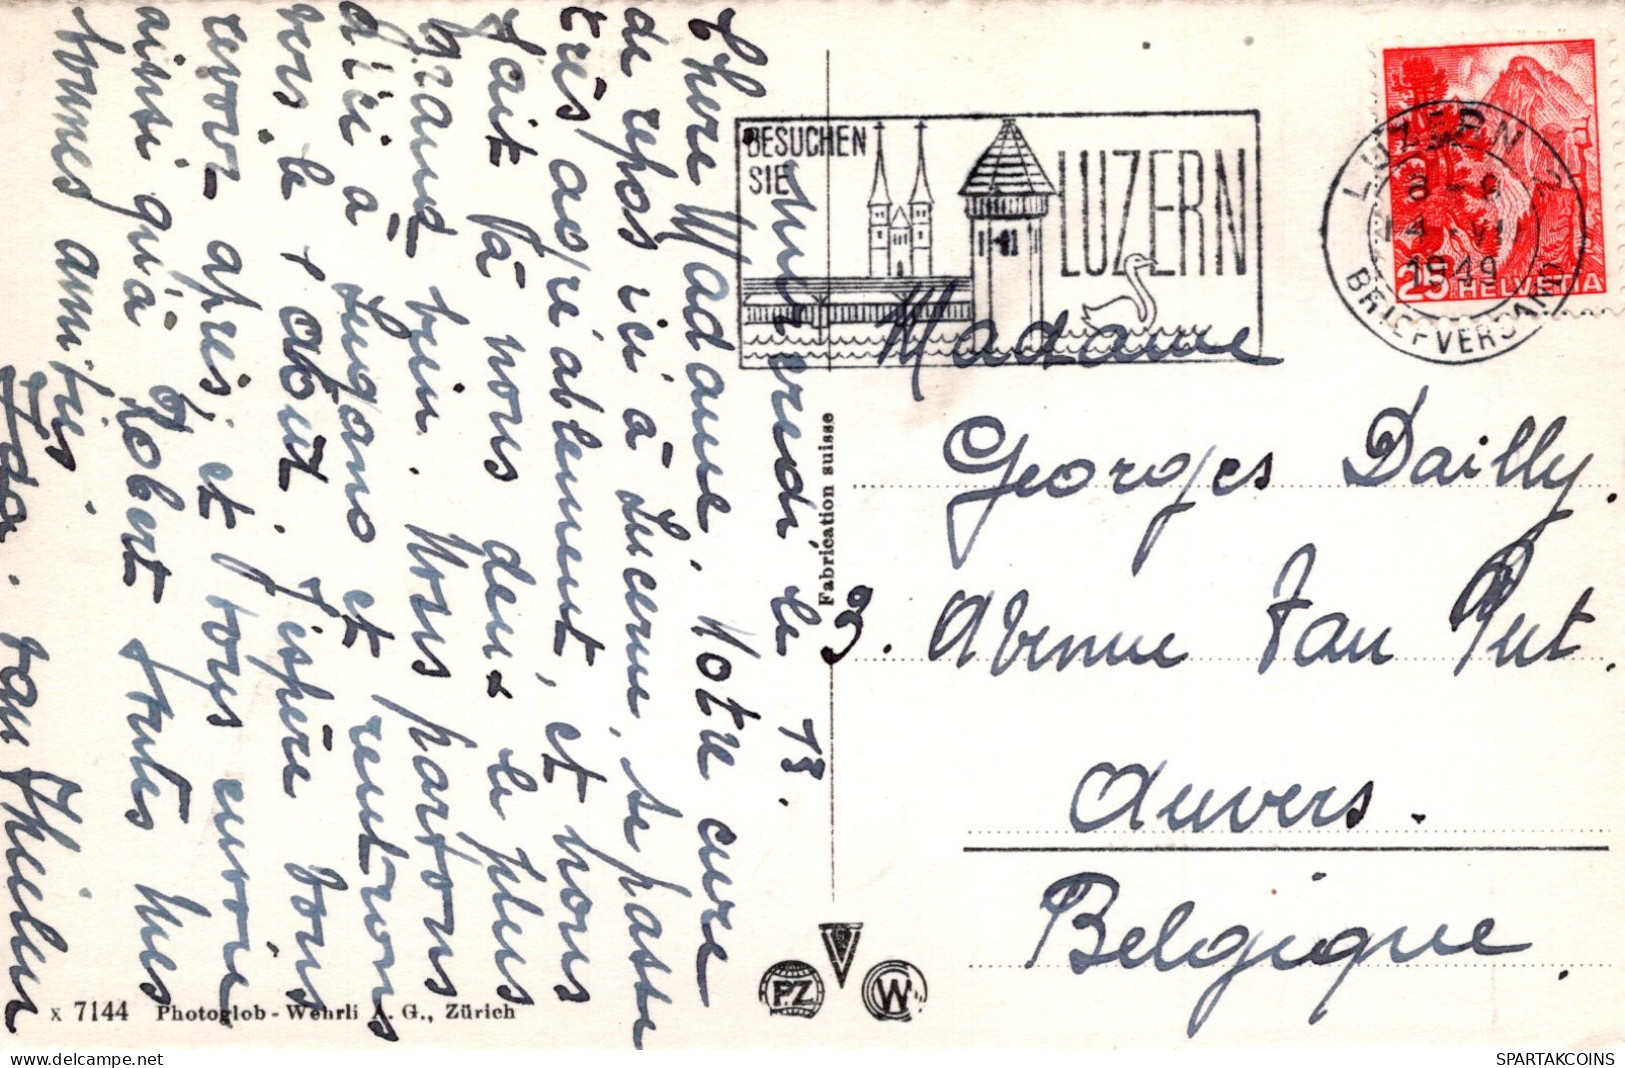 mercredi le 13.
Chère Madame, Notre cure
de repos ici à Lucerne, se passe
très agréablement, et nous
fait à nous deux le plus
grand bien. Nous partons
d'ici à Lugano et rentrons
vers le 1 août. J'espère vous
revoir après, et vous envoie
ainsi qu'à Robert toutes mes
bonnes amitiés.
Ida. van Thielen
BESUCHEN
SIE
LUZERN
LUZERN 2
8-9
14.VII
1949
BRIEFVERSAND
25 HELVETIA
Madame
Georges Dailly.
3. Avenue Van Put.
Anvers.
Belgique.
Fabrication suisse
PZ
W
x 7144 Photoglob-Wehrli A. G., Zürich
SPARTAKCOINS